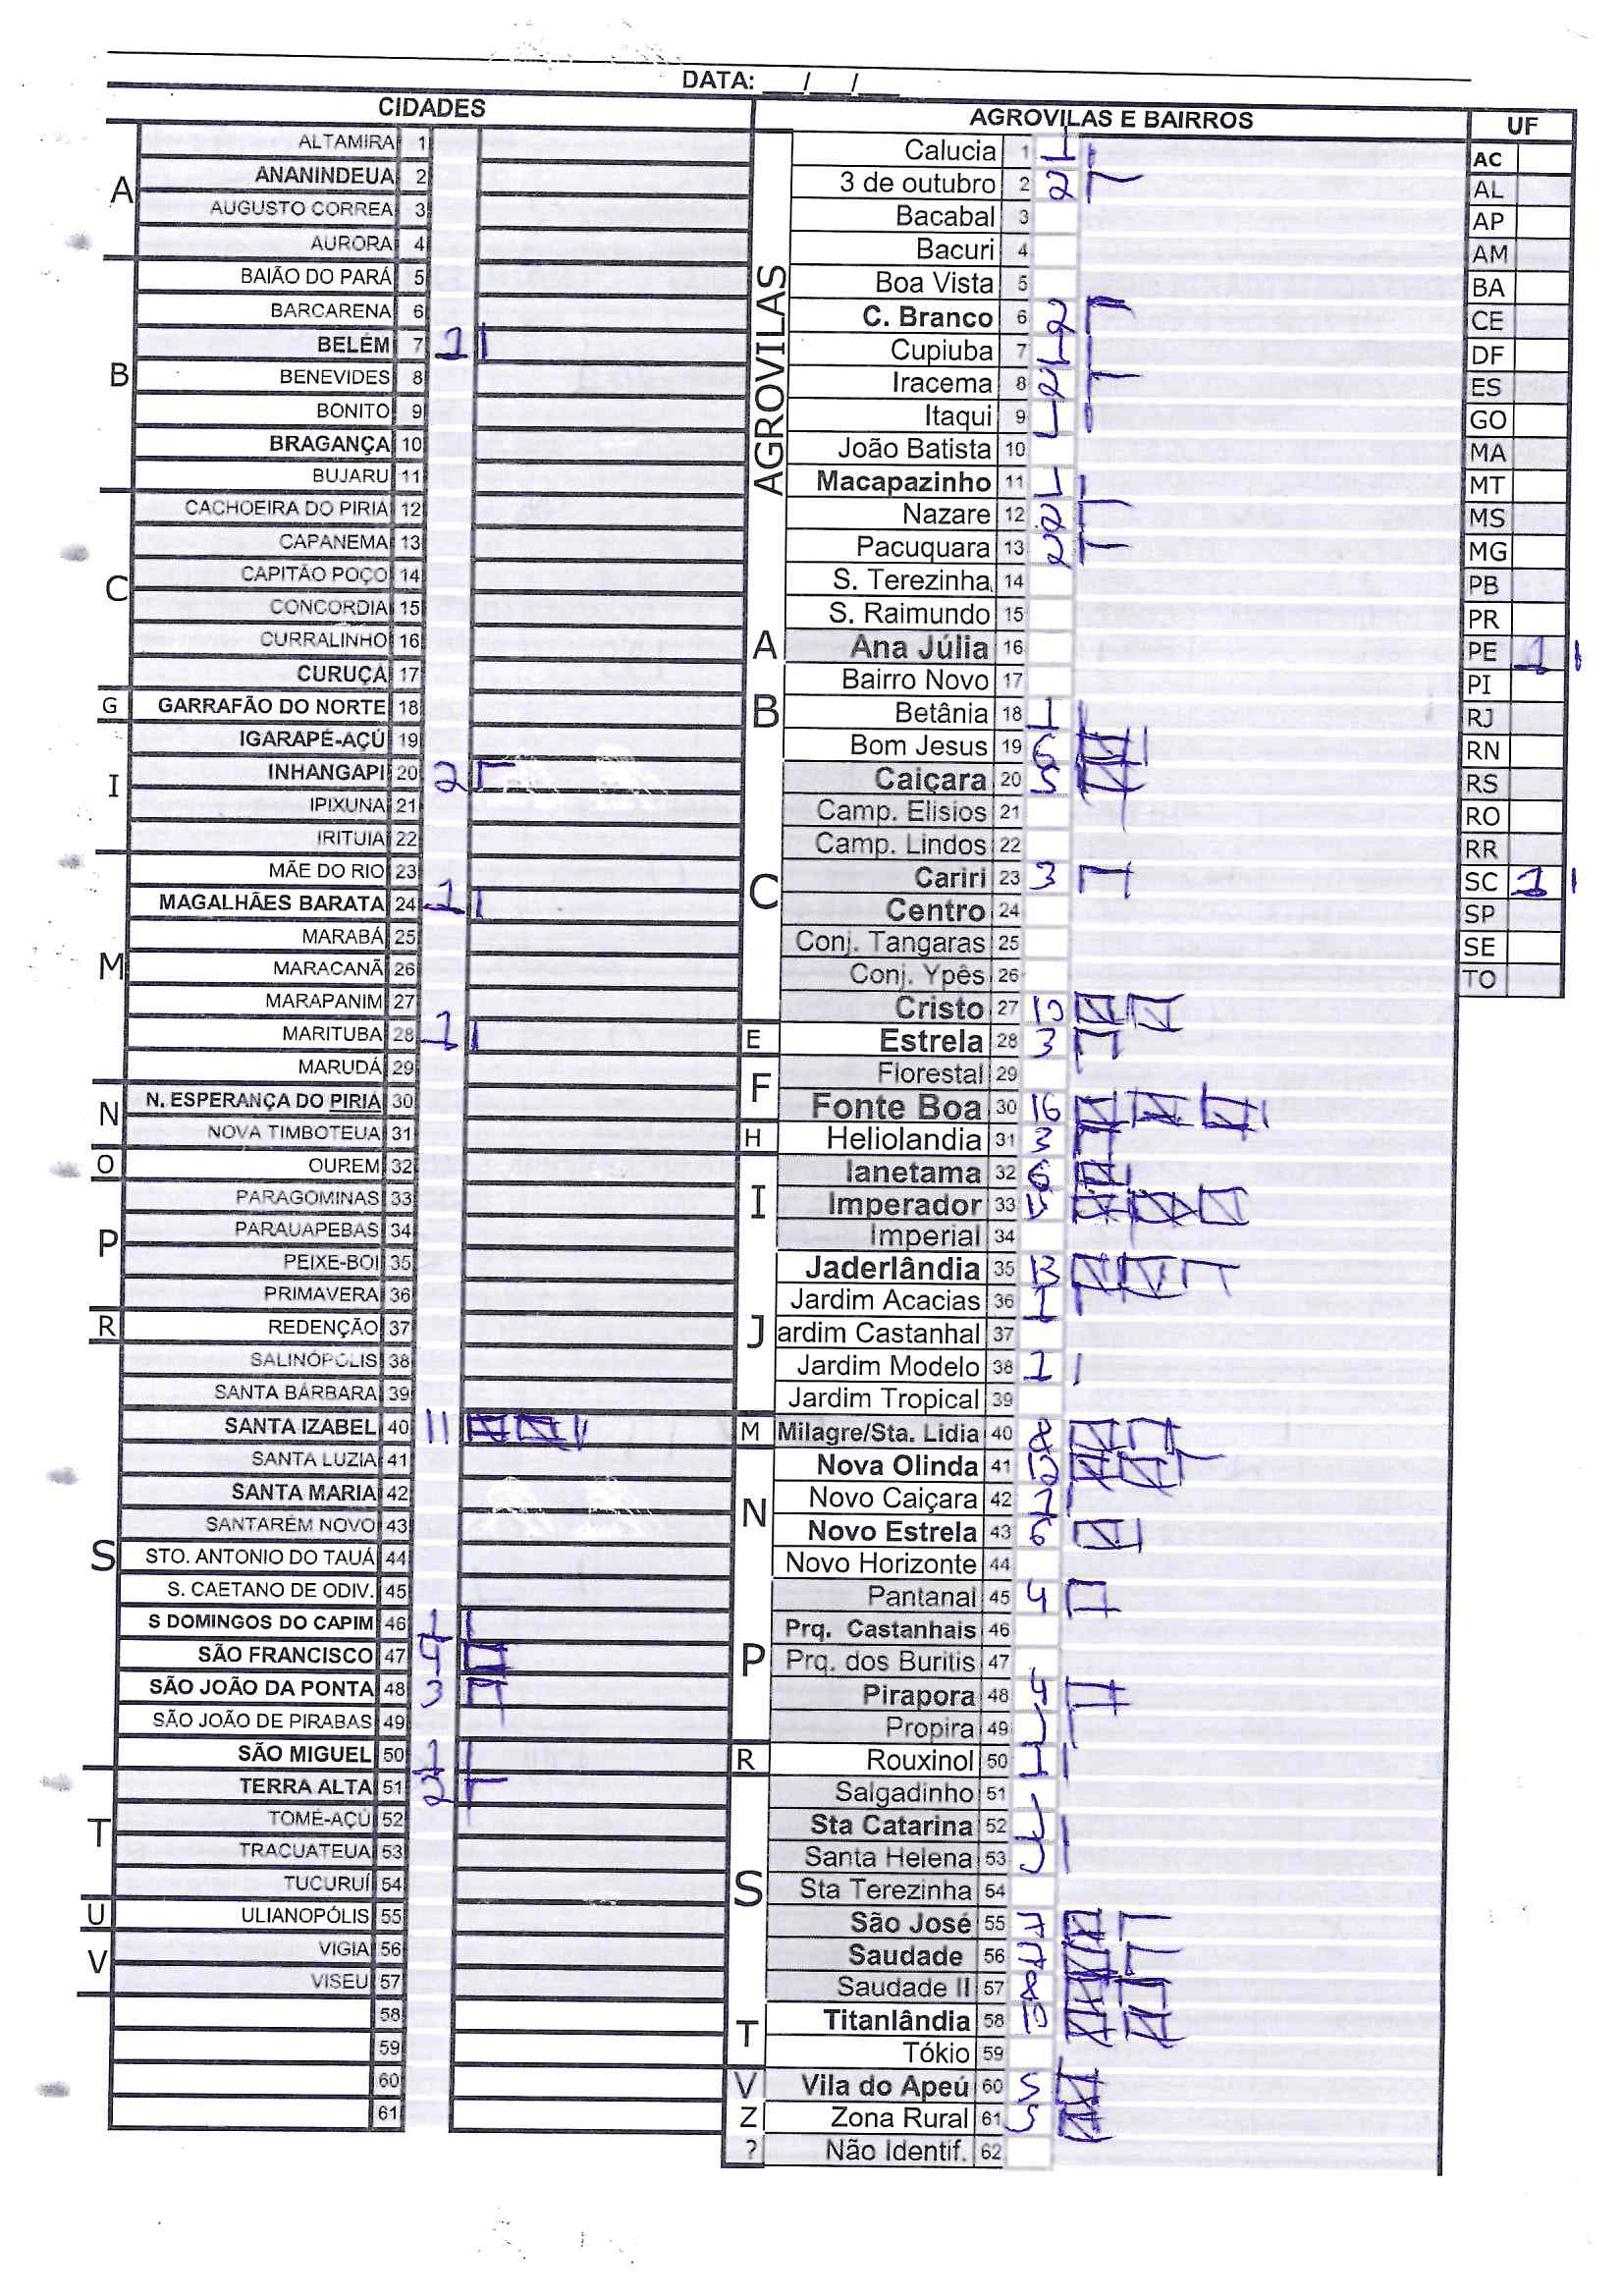 DATA: __/__/__
CIDADES
A
ALTAMIRA 1
ANANINDEUA 2
AUGUSTO CORREA 3
AURORA 4
B
BAIÃO DO PARÁ 5
BARCARENA 6
BELÉM 7 1
BENEVIDES 8
BONITO 9
BRAGANÇA 10
BUJARU 11
C
CACHOEIRA DO PIRIÁ 12
CAPANEMA 13
CAPITÃO POÇO 14
CONCORDIA 15
CURRALINHO 16
CURUÇA 17
G
GARRAFÃO DO NORTE 18
I
IGARAPÉ-AÇÚ 19
INHANGAPI 20 2
IPIXUNA 21
IRITUIA 22
M
MÃE DO RIO 23
MAGALHÃES BARATA 24 1
MARABÁ 25
MARACANÃ 26
MARAPANIM 27
MARITUBA 28 1
MARUDÁ 29
N
N. ESPERANÇA DO PIRIÁ 30
NOVA TIMBOTEUA 31
O
OUREM 32
P
PARAGOMINAS 33
PARAUAPEBAS 34
PEIXE-BOI 35
PRIMAVERA 36
R
REDENÇÃO 37
S
SALINÓPOLIS 38
SANTA BÁRBARA 39
SANTA IZABEL 40 11
SANTA LUZIA 41
SANTA MARIA 42
SANTARÉM NOVO 43
STO. ANTONIO DO TAUÁ 44
S. CAETANO DE ODIV. 45
S DOMINGOS DO CAPIM 46 1
SÃO FRANCISCO 47 4
SÃO JOÃO DA PONTA 48 3
SÃO JOÃO DE PIRABAS 49
SÃO MIGUEL 50 1
T
TERRA ALTA 51 2
TOMÉ-AÇÚ 52
TRACUATEUA 53
TUCURUÍ 54
U
ULIANOPÓLIS 55
V
VIGIA 56
VISEU 57
58
59
60
61
AGROVILAS E BAIRROS
AGROVILAS
Calucia 1 1
3 de outubro 2 2
Bacabal 3
Bacuri 4
Boa Vista 5
C. Branco 6 2
Cupiuba 7 1
Iracema 8 2
Itaqui 9 1
João Batista 10
Macapazinho 11 1
Nazare 12 2
Pacuquara 13 2
S. Terezinha 14
S. Raimundo 15
A
Ana Júlia 16
B
Bairro Novo 17
Betânia 18 1
Bom Jesus 19 6
C
Caiçara 20 5
Camp. Elisios 21
Camp. Lindos 22
Cariri 23 3
Centro 24
Conj. Tangaras 25
Conj. Ypês 26
Cristo 27 10
E
Estrela 28 3
F
Florestal 29
Fonte Boa 30 16
H
Heliolandia 31 3
I
Ianetama 32 6
Imperador 33 15
Imperial 34
J
Jaderlândia 35 13
Jardim Acacias 36 1
ardim Castanhal 37
Jardim Modelo 38 1
Jardim Tropical 39
M
Milagre/Sta. Lidia 40 8
N
Nova Olinda 41 12
Novo Caiçara 42 1
Novo Estrela 43 6
Novo Horizonte 44
P
Pantanal 45 4
Prq. Castanhais 46
Prq. dos Buritis 47
Pirapora 48 4
Propira 49 1
R
Rouxinol 50 1
S
Salgadinho 51
Sta Catarina 52 1
Santa Helena 53 1
Sta Terezinha 54
São José 55 7
Saudade 56 7
Saudade II 57 8
T
Titanlândia 58 10
Tókio 59
V
Vila do Apeú 60 5
Z
Zona Rural 61 5
?
Não Identif. 62
UF
AC
AL
AP
AM
BA
CE
DF
ES
GO
MA
MT
MS
MG
PB
PR
PE 1
PI
RJ
RN
RS
RO
RR
SC 1
SP
SE
TO